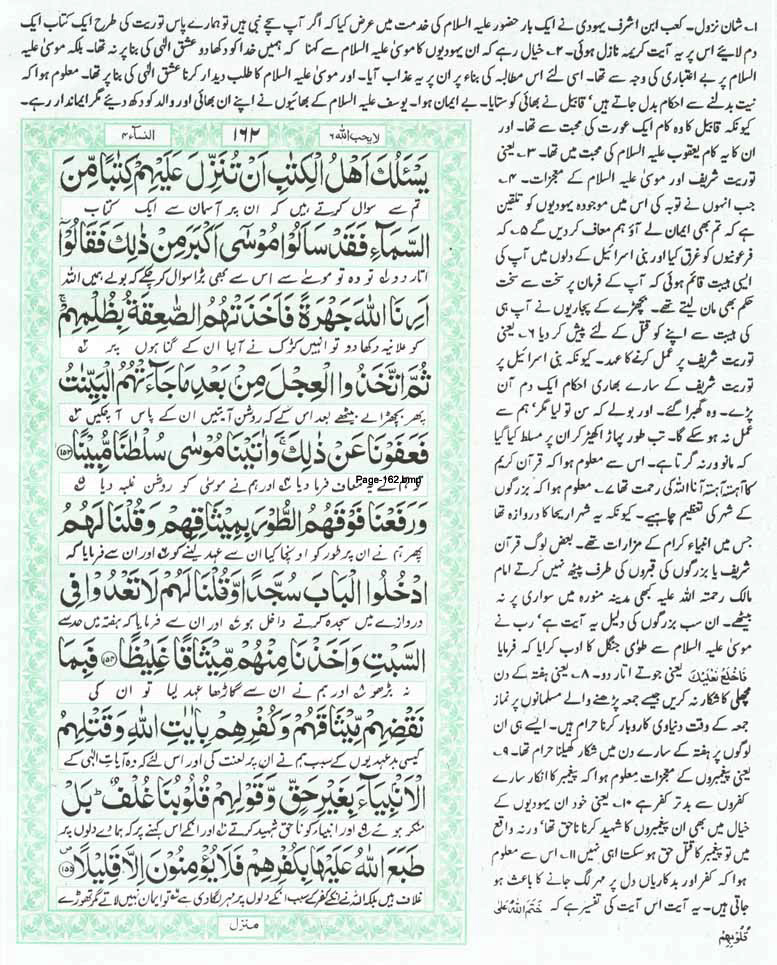 ۱۔ شان نزول۔ کعب ابن اشرف یہودی نے ایک بار حضور علیہ السلام کی خدمت میں عرض کیا کہ اگر آپ سچے نبی ہیں تو ہمارے پاس توریت کی طرح ایک کتاب ایک
دم لایئے اس پر یہ آیت کریمہ نازل ہوئی۔ ۲۔ خیال رہے کہ ان یہودیوں کا موسیٰ علیہ السلام سے کہنا کہ ہمیں خدا کو دکھا دو عشق الٰہی کی بنا پر نہ تھا۔ بلکہ موسیٰ علیہ
السلام پر بے اعتباری کی وجہ سے تھا۔ اسی لئے اس مطالبہ کی بناء پر ان پر یہ عذاب آیا۔ اور موسیٰ علیہ السلام کا طلب دیدار کرنا عشق الٰہی کی بنا پر تھا۔ معلوم ہوا کہ
نیت بدلنے سے احکام بدل جاتے ہیں، قابیل نے بھائی کو ستایا۔ بے ایمان ہوا۔ یوسف علیہ السلام کے بھائیوں نے اپنے ان بھائی اور والد کو دکھ دیئے مگر ایماندار رہے۔
کیونکہ قابیل کا وہ کام ایک عورت کی محبت سے تھا۔ اور
ان کا یہ کام یعقوب علیہ السلام کی محبت میں تھا۔ ۳۔ یعنی
توریت شریف اور موسیٰ علیہ السلام کے معجزات۔ ۴۔
جب انہوں نے توبہ کی اس میں موجودہ یہودیوں کو تلقین
ہے کہ تم بھی ایمان لے آؤ ہم معاف کر دیں گے ۵۔ کہ
فرعونیوں کو غرق کیا اور بنی اسرائیل کے دلوں میں آپ کی
ایسی ہیبت قائم ہوئی کہ آپ کے فرمان پر سخت سے سخت
حکم بھی مان لیتے تھے۔ بچھڑے کے پجاریوں نے آپ ہی
کی ہیبت سے اپنے کو قتل کے لئے پیش کر دیا ۶۔ یعنی
توریت شریف پر عمل کرنے کا عہد۔ کیونکہ بنی اسرائیل پر
توریت شریف کے سارے بھاری احکام ایک دم آن
پڑے۔ وہ گھبرا گئے۔ اور بولے کہ سن تو لیا مگر، ہم سے
عمل نہ ہو سکے گا۔ تب طور پہاڑ اکھیڑ کر ان پر مسلط کیا گیا
کہ مانو ورنہ گرتا ہے۔ اس سے معلوم ہوا کہ قرآن کریم
کا آہستہ آہستہ آنا اللہ کی رحمت تھا ۷۔ معلوم ہوا کہ بزرگوں
کے شہر کی تعظیم چاہیے۔ کیونکہ یہ شہر اریحا کا دروازہ تھا
جس میں انبیاء کرام کے مزارات تھے۔ بعض لوگ قرآن
شریف یا بزرگوں کی قبروں کی طرف پیٹھ نہیں کرتے امام
مالک رحمتہ اللہ علیہ کبھی مدینہ منورہ میں سواری پر نہ
بیٹھے۔ ان سب بزرگوں کی دلیل یہ آیت ہے، رب نے
موسیٰ علیہ السلام سے طوٰی جنگل کا ادب کرایا کہ فرمایا
فَاخْلَعْ نَعْلَيْكَ یعنی جوتے اتار دو۔ ۸۔ یعنی ہفتہ کے دن
مچھلی کا شکار نہ کریں جیسے جمعہ پڑھنے والے مسلمانوں پر نماز
جمعہ کے وقت دنیاوی کاروبار کرنا حرام ہیں۔ ایسے ہی ان
لوگوں پر ہفتہ کے سارے دن میں شکار کھیلنا حرام تھا۔ ۹۔
یعنی پیغمبروں کے معجزات معلوم ہوا کہ پیغمبر کا انکار سارے
کفروں سے بد تر کفر ہے ۱۰۔ یعنی خود ان یہودیوں کے
خیال میں بھی ان پیغمبروں کا شہید کرنا ناحق تھا، ورنہ واقع
میں تو پیغمبر کا قتل حق ہو سکتا ہی نہیں ۱۱۔ اس سے معلوم
ہوا کہ کفر اور بدکاریاں دل پر مہر لگ جانے کا باعث ہو
جاتی ہیں۔ یہ آیت اس آیت کی تفسیر ہے کہ خَتَمَ اللّٰهُ عَلٰى
قُلُوْبِهِمْ
لا یحب اللہ ۶
۱۶۲
النساء ۴
يَسْـَٔلُكَ اَهْلُ الْكِتٰبِ اَنْ تُنَزِّلَ عَلَيْهِمْ كِتٰبًا مِّنَ
تم سے سوال کرتے ہیں کہ ان پر آسمان سے ایک کتاب
السَّمَآءِ فَقَدْ سَاَلُوْا مُوْسٰۤى اَكْبَرَ مِنْ ذٰلِكَ فَقَالُوْۤا
اتار دو لہ تو وہ تو موسیٰ سے اس سے بھی بڑا سوال کر چکے کہ بولے ہمیں اللہ
اَرِنَا اللّٰهَ جَهْرَةً فَاَخَذَتْهُمُ الصّٰعِقَةُ بِظُلْمِهِمْ ۚ
کو علانیہ دکھا دو تو انہیں کڑک نے آلیا ان کے گنا ہوں پر
ثُمَّ اتَّخَذُوا الْعِجْلَ مِنْۢ بَعْدِ مَا جَآءَتْهُمُ الْبَيِّنٰتُ
پھر بچھڑا لے بیٹھے بعد اس کے کہ روشن آیتیں ان کے پاس آچکیں
فَعَفَوْنَا عَنْ ذٰلِكَ ۚ وَاٰتَيْنَا مُوْسٰى سُلْطٰنًا مُّبِيْنًا ﴿۱۵۳﴾
Page-162.bmp
تو ہم نے یہ معاف فرما دیا اور ہم نے موسیٰ کو روشن غلبہ دیا
وَرَفَعْنَا فَوْقَهُمُ الطُّوْرَ بِمِيْثَاقِهِمْ وَقُلْنَا لَهُمُ
پھر ہم نے ان پر طور کو اونچا کیا ان سے عہد لینے کو اور ان سے فرمایا کہ
ادْخُلُوا الْبَابَ سُجَّدًا وَّقُلْنَا لَهُمْ لَا تَعْدُوْا فِى
دروازے میں سجدہ کرتے داخل ہو اور ان سے فرمایا کہ ہفتہ میں حد سے
السَّبْتِ وَاَخَذْنَا مِنْهُمْ مِّيْثَاقًا غَلِيْظًا ﴿۱۵۴﴾ فَبِمَا
نہ بڑھو اور ہم نے ان سے گاڑھا عہد لیا تو ان کی
نَقْضِهِمْ مِّيْثَاقَهُمْ وَكُفْرِهِمْ بِاٰيٰتِ اللّٰهِ وَقَتْلِهِمُ
کیسی بدعہدیوں کے سبب ہم نے ان پر لعنت کی اور اس لئے کہ وہ آیات الٰہی کے
الْاَنْۢبِيَآءَ بِغَيْرِ حَقٍّ وَّقَوْلِهِمْ قُلُوْبُنَا غُلْفٌ ؕ بَلْ
منکر ہوئے اور انبیاء کو ناحق شہید کرتے اور انکے اس کہنے پر کہ ہمارے دلوں پر
طَبَعَ اللّٰهُ عَلَيْهَا بِكُفْرِهِمْ فَلَا يُؤْمِنُوْنَ اِلَّا قَلِيْلًا ﴿۱۵۵﴾
غلاف ہیں بلکہ اللہ نے انکے کفر کے سبب انکے دلوں پر مہر لگا دی ہے تو ایمان نہیں لاتے مگر تھوڑے
منزل